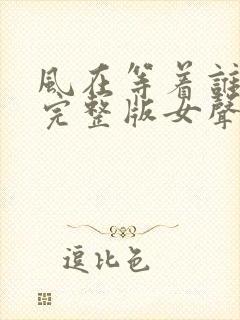 風在等着誰
完整版女聲
逗比色